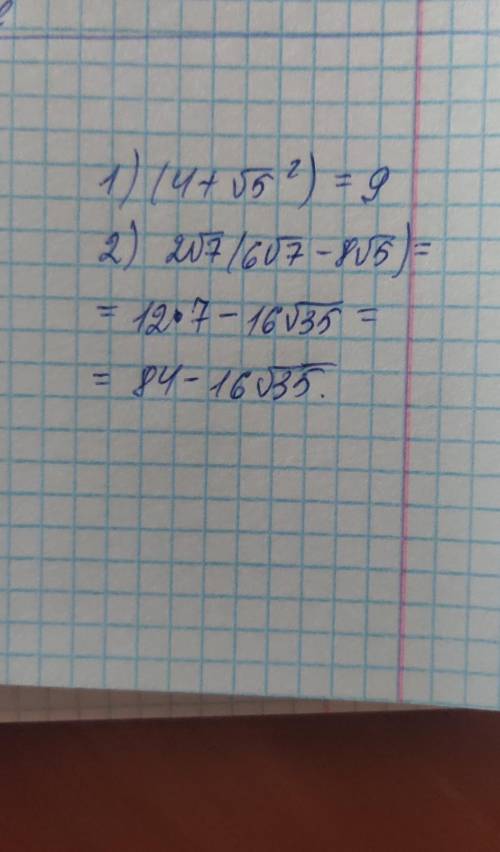 1) (4 + √5²) = 9
2) 2√7 (6√7 - 8√5) =
= 12•7 - 16√35 =
= 84 - 16√35.